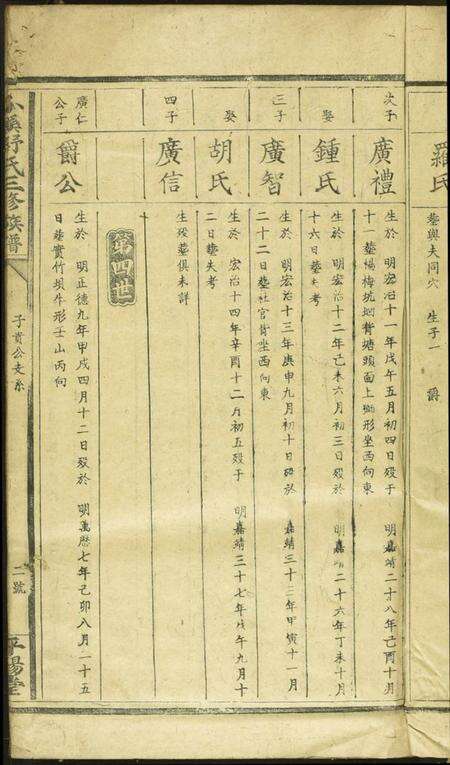 羅氏
塟與夫同穴 生子一 爵
次子
廣禮
生於 明宏治十一年戊午五月初四日殁于 明嘉靖二十八年己酉十月
十一塟楊梅坑坳背塘頭面上獅形坐西向東
娶
鍾氏
生於 明宏治十二年己未六月初三日殁於 明嘉靖二十六年丁未十月
十六日塟失考
三子
廣智
生於 明宏治十三年庚申九月初十日殁於 嘉靖三十三年甲寅十一月
二十二日塟社官背坐西向東
娶
胡氏
生於 宏治十四年辛酉十二月初五殁于 明嘉靖三十七年戊午九月十
二日塟失考
四子
廣信
生殁塟俱未詳
第四世
廣仁
公子
爵公
生於 明正德九年甲戌四月十二日殁於 明萬歷七年己卯八月二十五
日塟實竹坝牛形壬山丙向
溪舒氏三修族譜
子貫公支系
二號
平陽堂